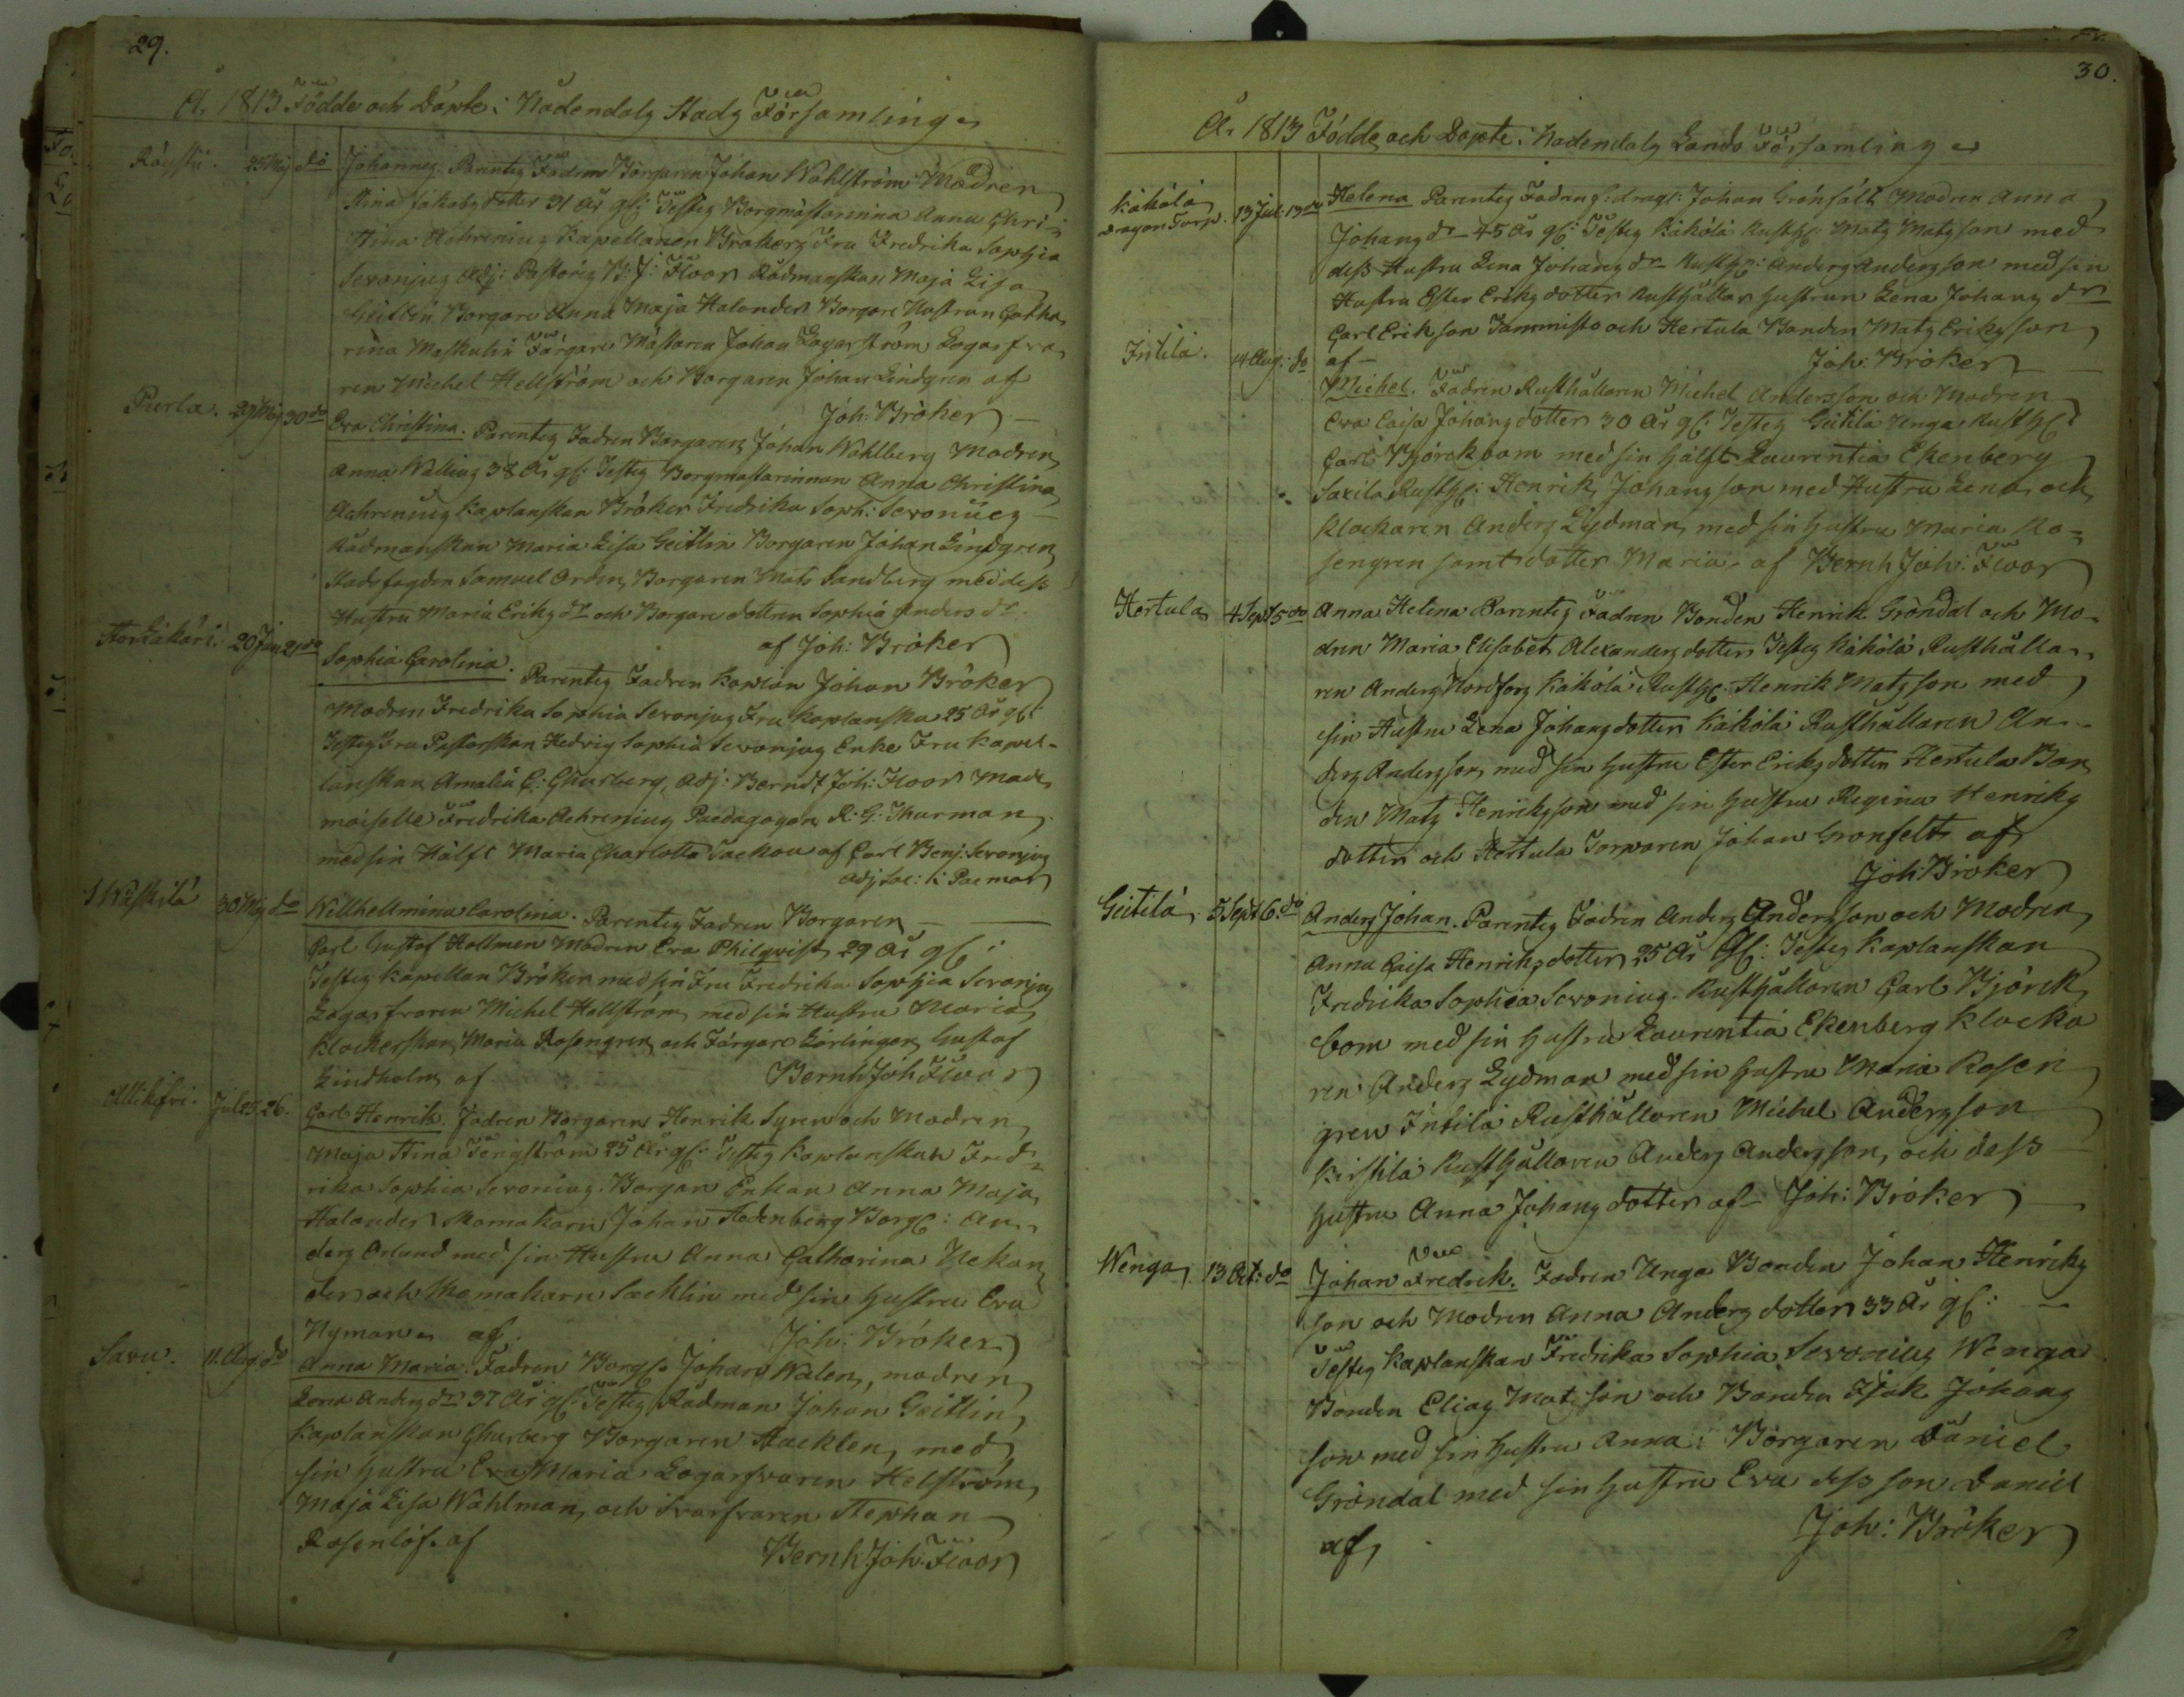 29.
År 1813 Födde och Döpte i Nådendals Stads Församling
Röysti. 25 Maj do Johannes. Parentes Fadren Borgaren Johan Wahlström Modren
Stina Jakobs dotter 31 År gl: Testes Borgmästarinna Anna Chri=
stina Achrenius Kapellanen Brökers Fru Fredrika Sophia
Sevonius Adj: Pastoris B: J: Floor Rådmanskan Maja Lisa
Geitlin Borgare Anna Maja Helander Borgare Hustrun Catha
rina Maskulin Färgare Mästaren Johan Lagerström Logarfva
ren Michel Hellström och Borgaren Johan Lindgren af
Joh: Bröker
Purla. 29 Maj 30 do Eva Christina. Parentes Fadren Borgaren Johan Wahlberg Modren
Anna Wallius 38 År gl: Testes Borgmästarinnan Anna Christina
Achrenius Kaplanskan Bröker Fredrika Soph: Sevonius
Rådmanskan Maria Lisa Geitlin Borgaren Johan Lindgren
Stadsfogden Samuel Orden, Borgaren Mats Sandberg med dess
Hustru Maria Eriks dr och Borgare dottren Sophia Anders dr
af Joh: Bröker
20 Jun 21 do Sophia Carolina. Parentes Fadren Kaplan Johan Bröker
Modren Fredrika Sophia Sevonius Fru Kaplanska 25 År gl:
Testes Fru Pastorskan Hedvig Sophia Sevonius Enke Fru Kapel-
lanskan Amalia C: Ghurberg, Adj: Berndt Joh: Floor Made
moiselle Fredrika Achrenius Paedagogen R. G. Thurman
med sin Hälft Maria Charlotta Sackou af Carl Benj: Sevonius
Adj Sac: i Paemar
30 Maj do Willhellmina Carolina. Parentes Fadren Borgaren
Carl Gustaf Hollmen Modren Eva Philqvist 29 År gl:
Testes Kapellan Bröker med sin Fru Fredrika Sophia Sevonius
Logarfvaren Michel Hellström med sin Hustru Maria
Klockerskan Maria Rosengren och Färgare Lärlingen Gustaf
Lindholm af Bernh Joh Floor
Allikifvi. Jul 25, 26. Carl Henrik. Fadren Borgaren Henrik Syren och Modren
Maja Stina Tengström 25 År gl: Testes Kaplanskan Fred
rika Sophia Sevonius. Borgare Enkan Anna Maja
Helander Skomakarn Johan Hedenberg Borg: An
ders Orlund med sin Hustru Anna Catharina Uckan
der och Skomakarn Sacklin med sin hustru Eva
Nyman af Joh: Bröker
Savu. 11. Aug: do Anna Maria. Fadren Borg: Johan Walen, modren
Lena Anders dr 37 År gl: Testes Rådman Johan Geitlin,
Kaplanskan Ghurberg Borgaren Stacklen, med
sin hustru Eva Maria Logarfvaren Helström,
Maja Lisa Wahlman, och Svarfvaren Stephan
Rosenlöf. af Bernh Joh: Floor
30.
År 1813 Födde och Döpte i Nådendals Lands Församling
Käkölä Dragon Torp. 13 Jul: 13 do Helena Parentes Fadren f: drag: Johan Grönfält Modren Anna
Johans dr 45 År gl: Testes Käkölä Rusth: Mats Matsson med
dess Hustru Lena Johans dr Rusth: Anders Andersson med sin
Hustru Ester Eriks dotter Rusthållar hustrun Lena Johans dr
Carl Erikson Tammisto och Hertula Bonden Mats Eriksson
af Joh: Bröker
Intilä. 14 Aug: do Michel. Fadren Rusthållaren Michel Andersson och Modren
Eva Caisa Johans dotter 30 År gl: Testes Geitilä Unga Rusth:
Carl Björckbom med sin hälft Laurentia Ekenberg
Saxila Rusth: Henrik Johansson med Hustru Lena, och
Klockaren Anders Lydman, med sin hustru Maria Ro=
sengren samt dotter Maria af Bernh Joh: Floor
Hertula 4 Sept 5 do Anna Helena Parentes Fadren Bonden Henrik Gröndal och Mo-
dren Maria Elisabet Alexanders dotter Testes Käkölä Rusthålla
ren Anders Nordfors Käkölä Rusth: Henrik Matsson med
sin Hustru Lena Johans dotter Käkölä Rusthållaren An-
ders Andersson, med sin hustru Ester Eriks dotter Hertula Bon
den Mats Henriksson med sin hustru Regina Henriks
dotter och Hertula Torparen Johan Gronfelt af
Joh Bröker
Geitilä, 5 Sept 6. do Anders Johan. Parentes Fadren Anders Andersson och Modren
Anna Caisa Henriks dotter 25 År gl: Testes Kaplanskan
Fredrika Sophia Sevonius. Rusthållaren Carl Björck
bom med sin hustru Laurentia Ekenberg Klocka
ren Anders Lydman med sin hustru Maria Rosen
gren Intilä Rusthållaren Michel Andersson
Kirstilä Rusthållaren Anders Andersson, och dess
hustru Anna Johans dotter af Joh: Bröker
Wenga, 13 Oct: do Johan Fredrik. Fadren Unga Bonden Johan Henriks
son och Modren Anna Anders dotter 33 År gl:
Testes Kaplanskan Fredrika Sophia Sevonius Wenga
Bonden Elias Matsson och Bonden Isak Johans
son med sin hustru Anna: Borgaren Daniel
Gröndal med sin hustru Eva dess son Daniel
af, Joh: Bröker